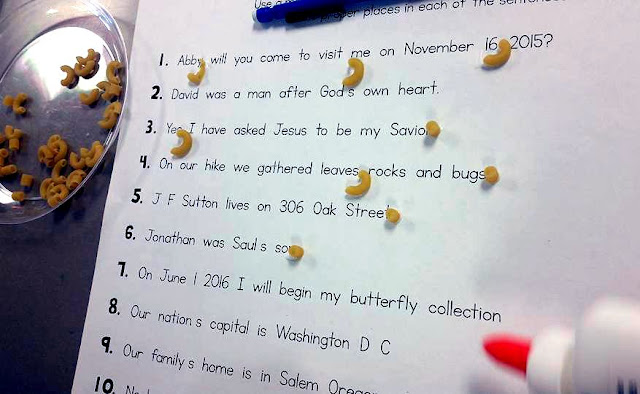 Use places in each of the sentences
1. Abby will you come to visit me on November 16 2015?
2. David was a man after God's own heart.
3. Yes I have asked Jesus to be my Savior
4. On our hike we gathered leaves rocks and bugs
5. J F Sutton lives on 306 Oak Street
6. Jonathan was Saul s son
7. On June 1 2016 I will begin my butterfly collection
8. Our nation s capital is Washington D C
9. Our family s home is in Salem Oregon
10.